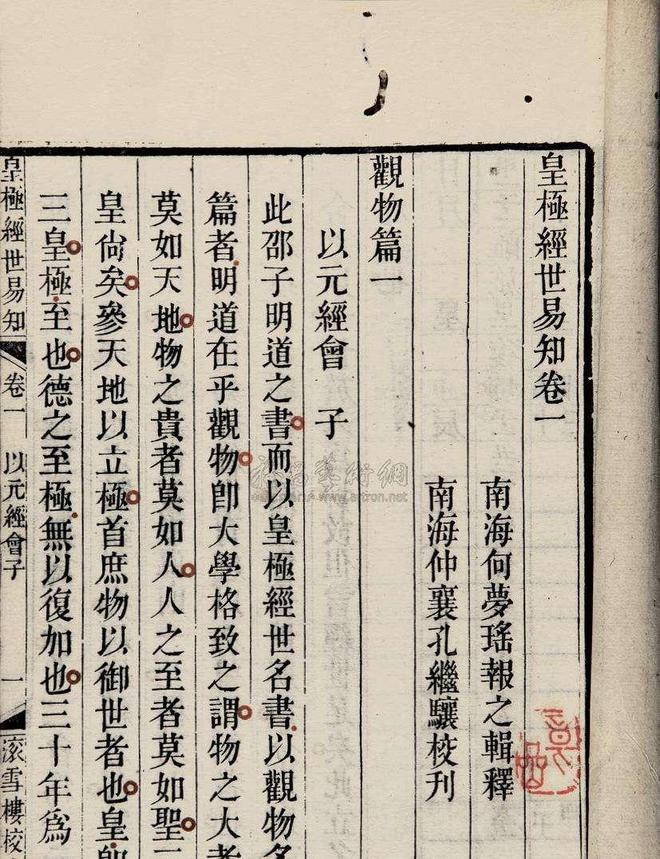 皇極經世易知卷一
南海何夢瑤報之輯釋
南海仲襄孔繼驤校刊
觀物篇一
以元經會　子
此邵子明道之書而以皇極經世名書以觀物名
篇者明道在乎觀物卽大學格致之謂物之大者
莫如天地物之貴者莫如人人之至者莫如聖
皇尙矣參天地以立極首庶物以御世者也皇卽
三皇極至也德之至極無以復加也三十年爲
皇極經世易知　卷一　以元經會子　一　滚雪樓校
www.artron.net